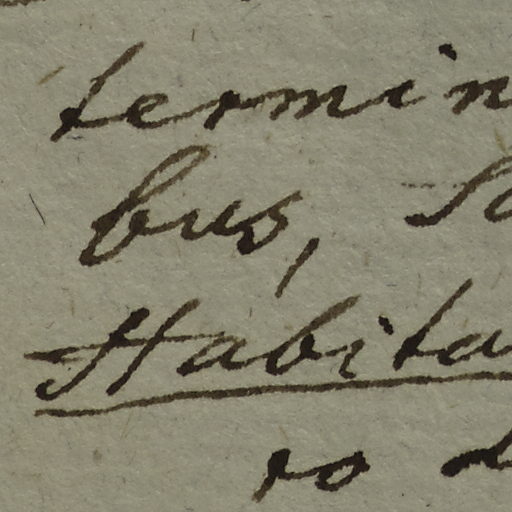 termin
bus, So
Habita
ro d